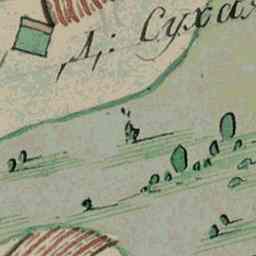 Д: Сухая